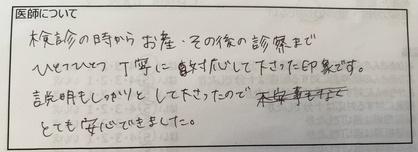 医師について
検診の時から お産・その後の診察まで
ひとつひとつ 丁寧に 対応して下さった印象です。
説明もしっかりと して下さったので
とても 安心できました。